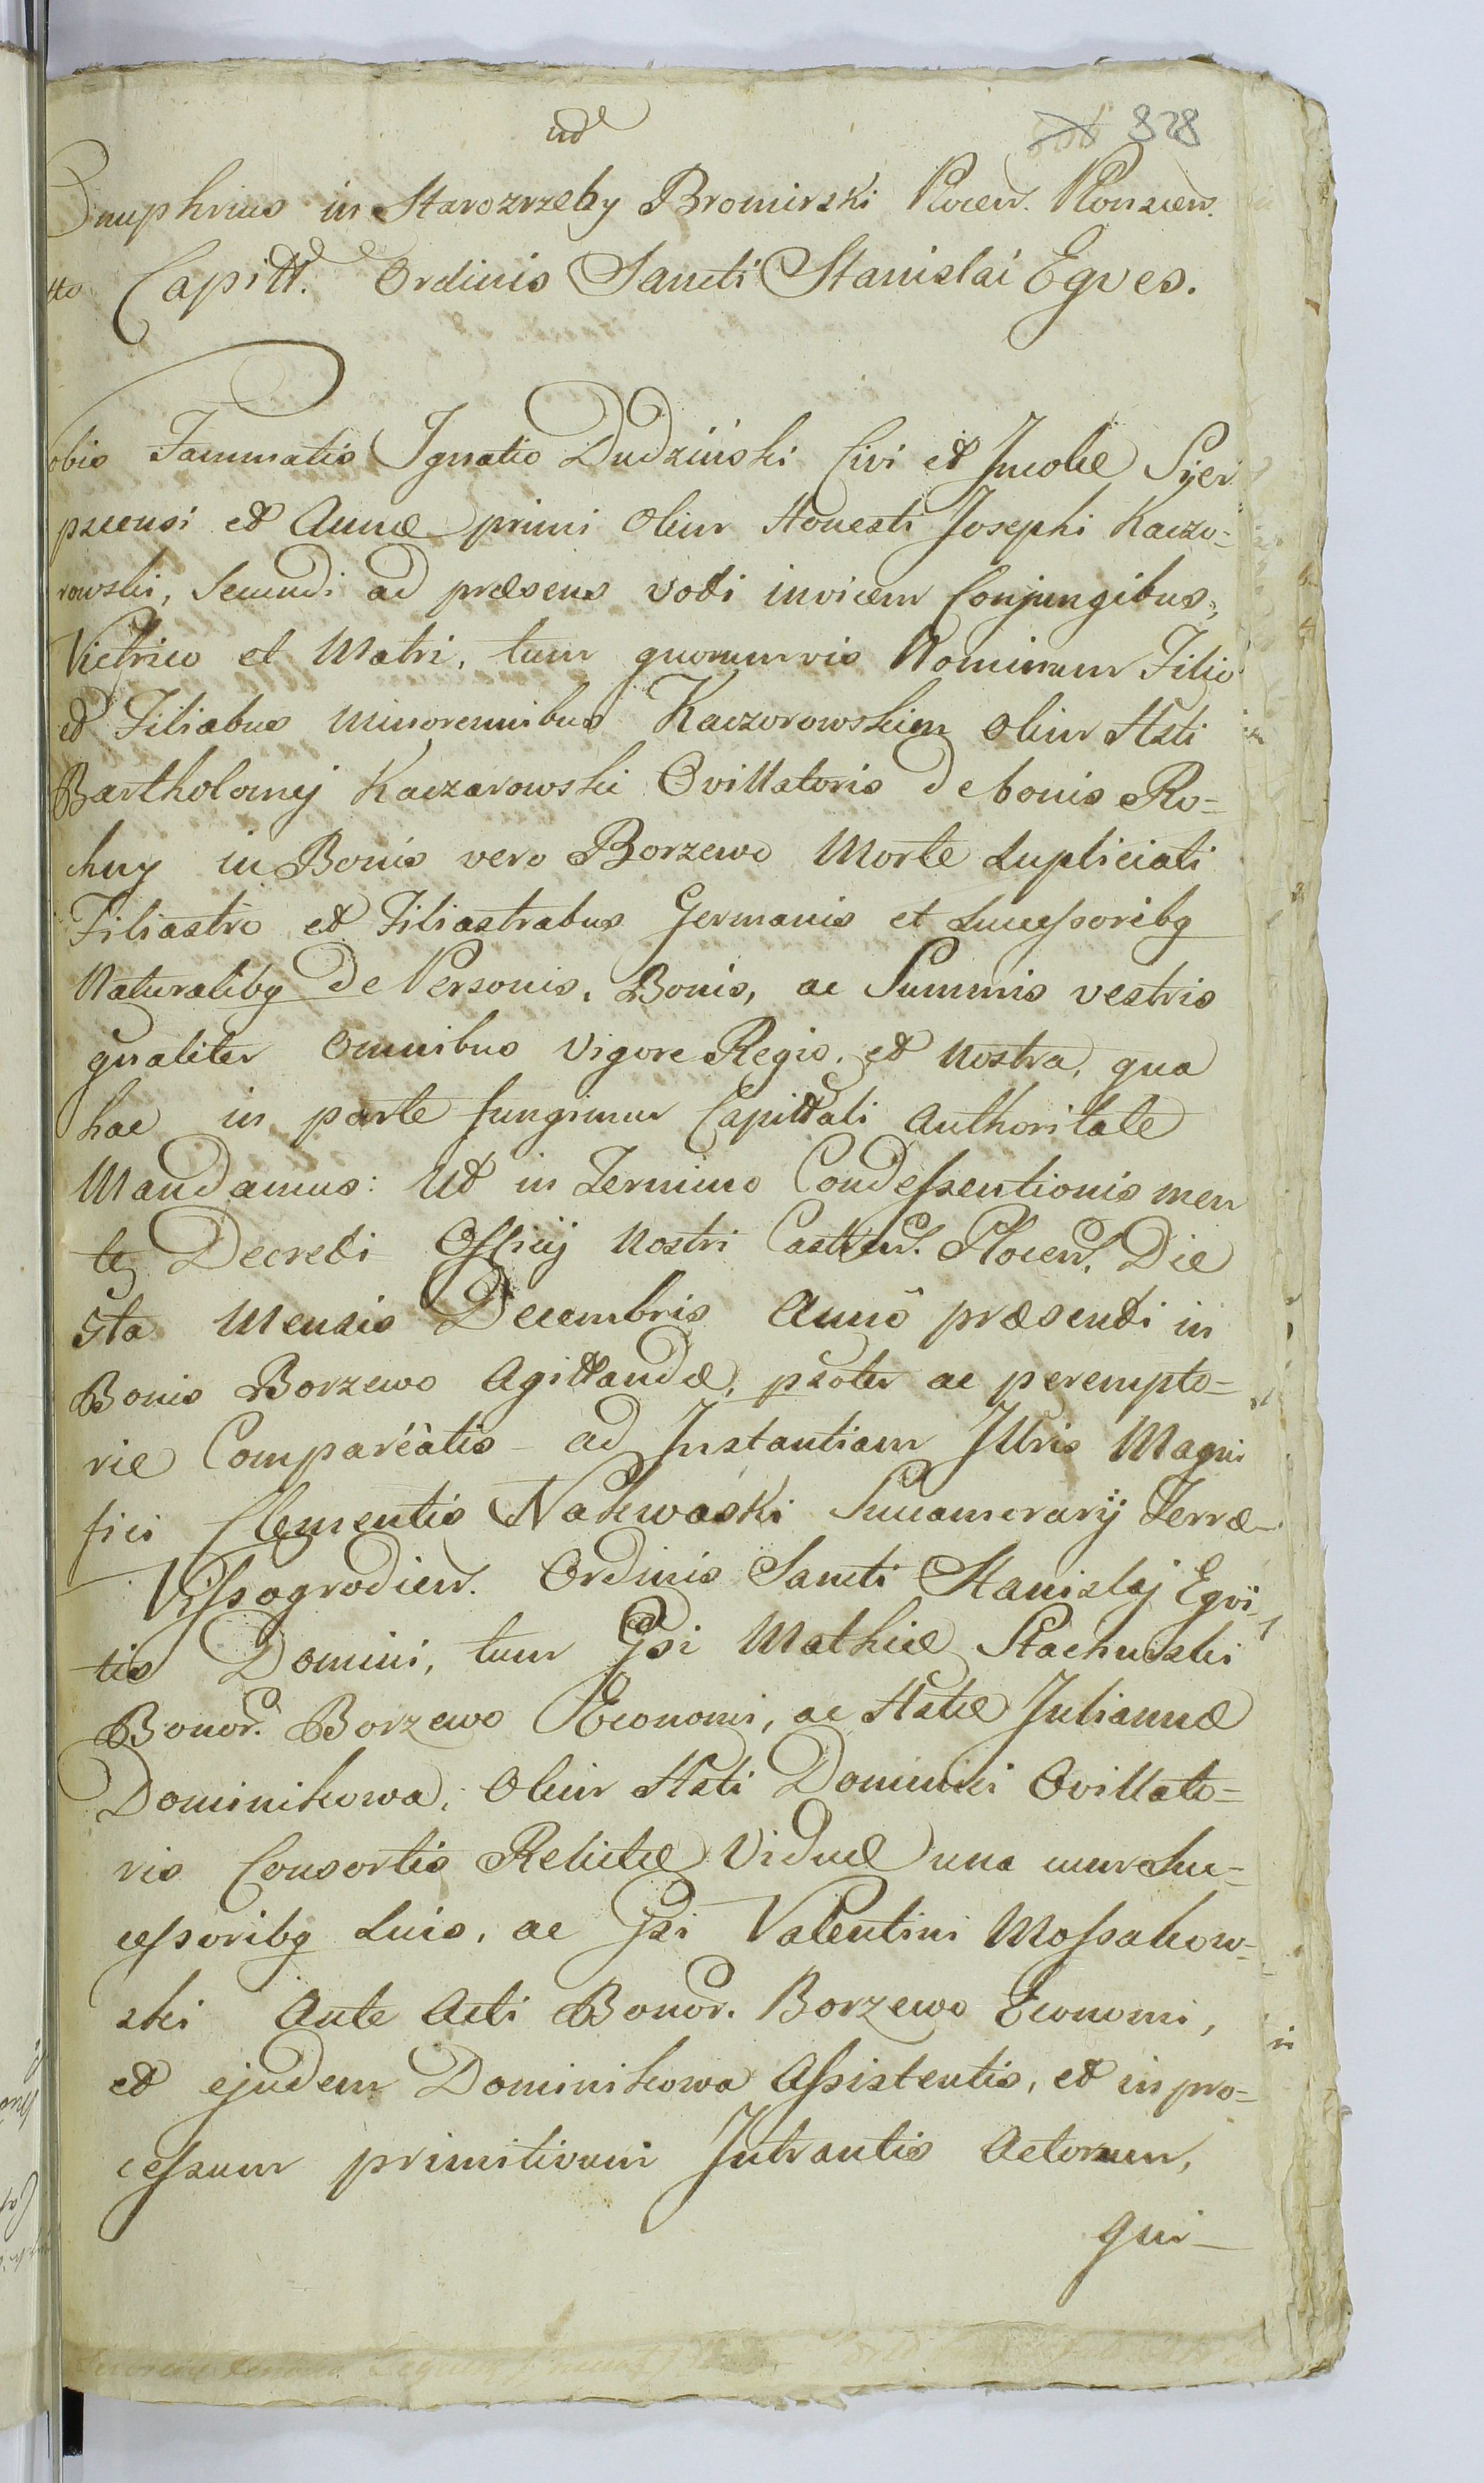 828
Onuphrius in Starozrzeby Bromirski Plocen. Plonscen.
Capitt. Ordinis Sancti Stanislai Eqves.
obis Fammatis Ignatio Dudziński Civi et Incolæ Syer
pscensi et Annæ primi olim Honesti Josephi Kaczo=
rowski, Secundi ad præsens voti invicem Conjungibus,
Victrico et Matri, tum quorumvis Nominum Filio
et Filiabus minorennibus Kaczorowskim olim Hsti
Bartholomej Kaczarowski Ovillatoris de bonis Ro=
chny in Bonis vero Borzewo Morte Supliciati
Filiastro et Filiastrabus Germanis et Successoribq
Naturalibq De Personis, Bonis, ac Summis vestris
qualiter omnibus Vigore Regia, et Nostra, qua
hac in parte fungimur Capitt̃ali Authoritate
Mandamus: Ut in Termino Condessentionis men
te Decreti Officij Nostri Castren. Plocen. Die
5ta Mensis Decembris Annô præsenti in
Bonis Borzewo Agittandæ, psõter ac perempto=
rie Compareatis ad Instantiam Illris Magni
fici Clementis Nakwaski Succamerarij Terræ
Vissogrodien. Ordinis Sancti Stanislaj Eqvi-
tis Domini, tum Gsi Mathiæ Stachurski
Bonor. Borzewo Economi, ac Hstæ Juliannæ
Dominikowa, Olim Hsti Dominici Ovillato=
ris Consortis Relictæ Viduæ una cum Suc=
cessoribq Suis, ac Gsi Valentini Mossakow-
ski Ante Acti Bonor. Borzewo Economi,
et ejudem Dominikowa Assistentis, et in pro=
cessum primitivum Intrantis Actorum,
qui-